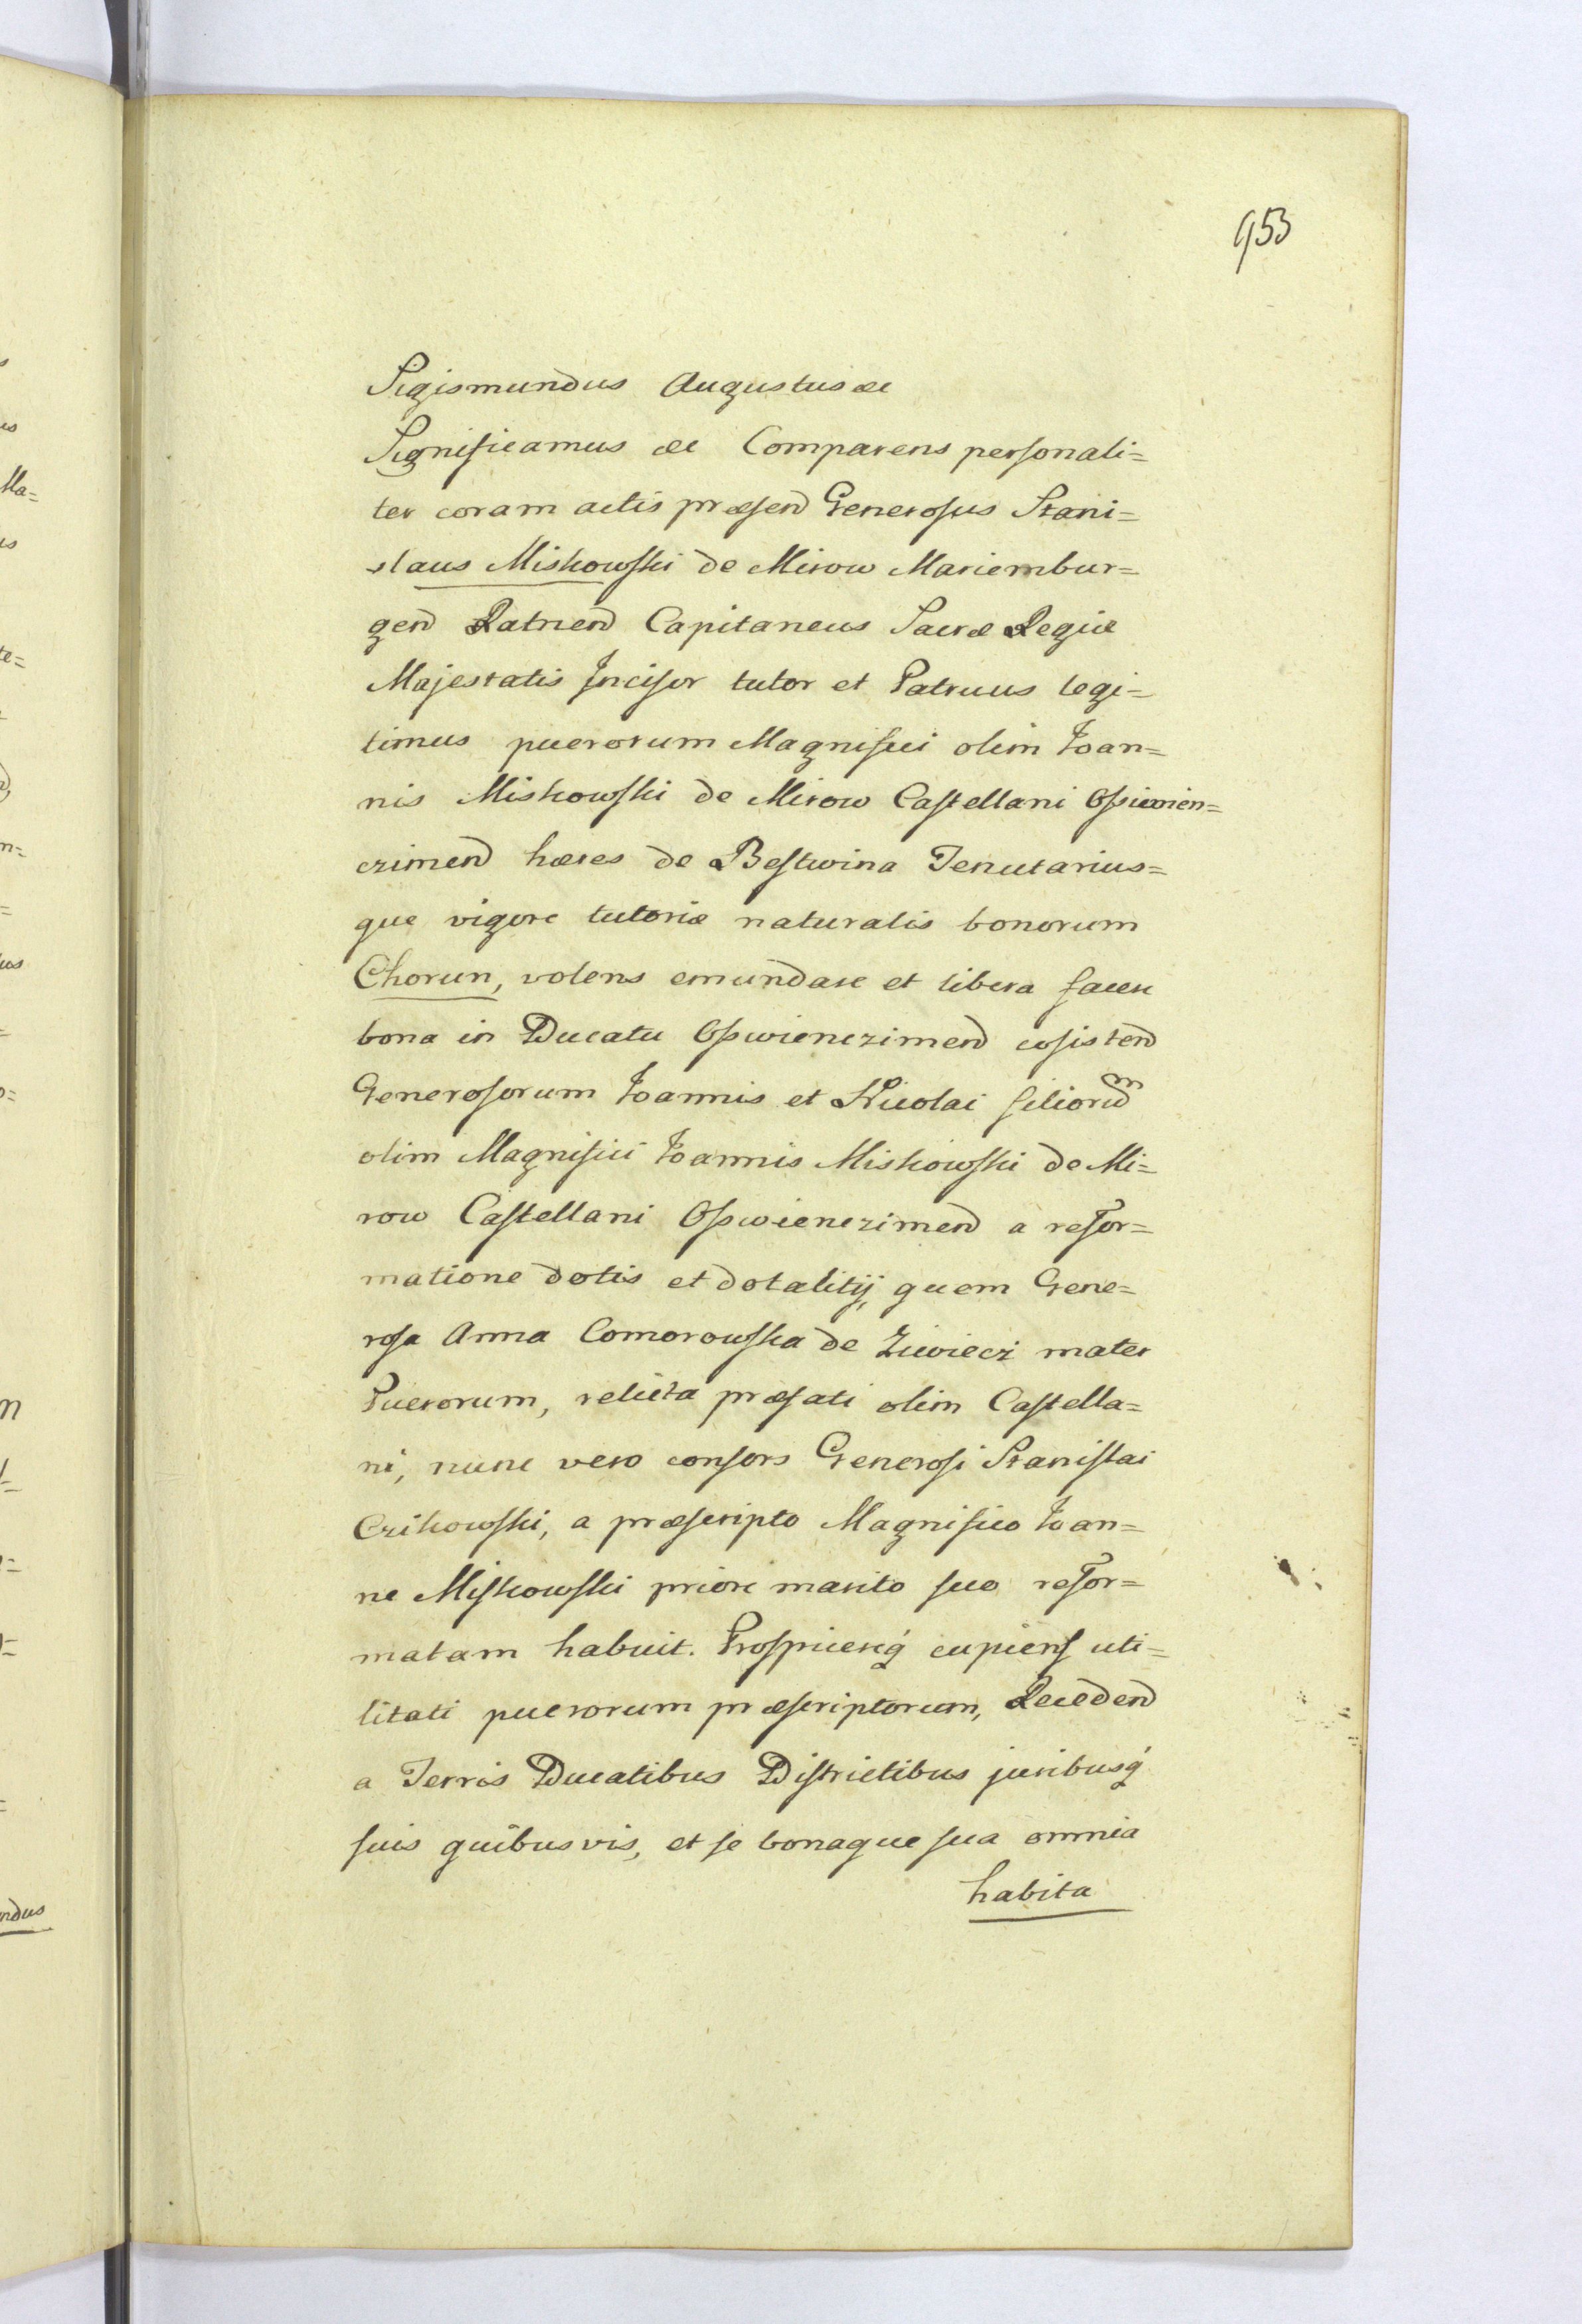 953
Sigismundus Augustus &c
Significamus &c Comparens personali=
ter coram actis præsen̄ Generosus Stani=
slaus Miskowski de Mirow Mariembur=
gen̄ Ratnen̄ Capitaneus Sacræ Regiæ
Majestatis Incisor tutor et Patruus legi=
timus puerorum Magnifici olim Joan=
nis Miskowski de Mirow Castellani Oswien=
czimen̄ hæres de Bestwina Tenutarius=
que vigore tutoriæ naturalis bonorum
Chorun, volens emundare et libera facere
bona in Ducatu Oswienczimen̄ cōsisten̄
Generosorum Joannis et Nicolai filiorum
olim Magnifici Joannis Miskowski de Mi=
row Castellani Oswienczimen̄ a refor=
matione dotis et dotalitij, quem Gene=
rosa Anna Comorowska de Ziwiecz mater
Puerorum, relicta præfati olim Castella=
ni, nunc vero consors Generosi Stanislai
Czikowski, a præscripto Magnifico Joan=
ne Miskowski priore marito suo refor=
matam habuit. Prospicereq́ cupiens uti=
litati puerorum præscriptorum, Receden̄
a Terris Ducatibus Districtibus juribusq́
suis quibusvis, et se bonaque sua omnia
habita